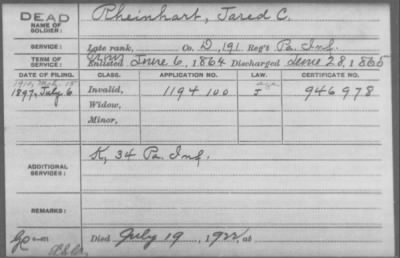 DEAD
NAME OF SOLDIER: Rheinhart, Jared C.
SERVICE: Late rank, Co. D, 191 Reg't Pa. Inf.
TERM OF SERVICE: Enlisted June 6, 1864 Discharged June 28, 1865
DATE OF FILING. CLASS. APPLICATION NO. LAW. CERTIFICATE NO.
1897, July 6 Invalid, 1194100 J 946978
Widow,
Minor,
ADDITIONAL SERVICES: K, 34 Pa. Inf.
REMARKS:
Died July 19, 1922, at